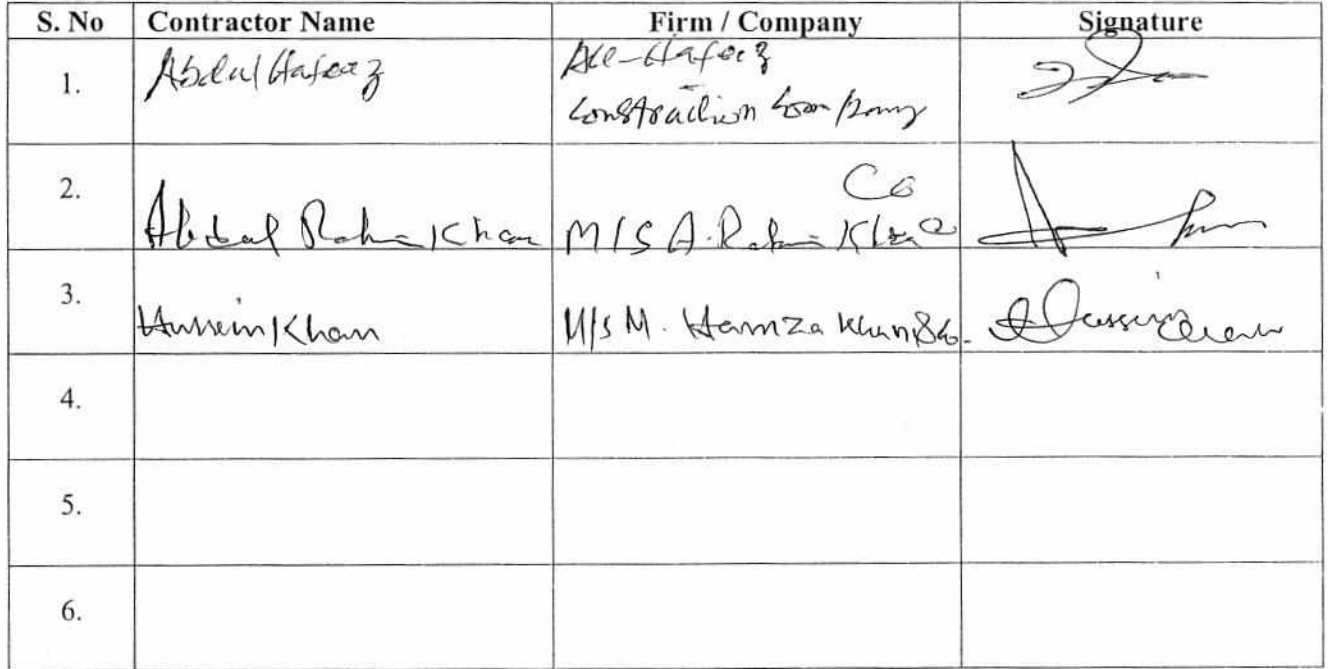 S. No Contractor Name Firm / Company Signature
1. Abdul Hafeez All-Hafeez
Construction Company
2. Abdul Rahim Khan M/S A. Rahim Khan Co
3. Hussein Khan M/S M. Hamza Khan & Co.
4.
5.
6.